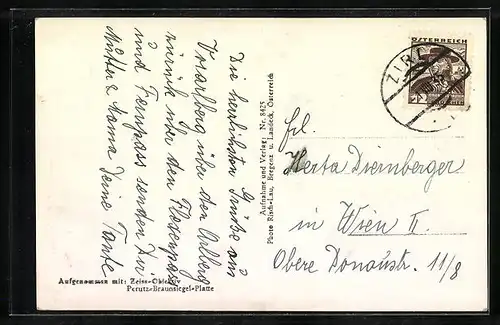 Die herrlichsten Grüße aus
Vorarlberg über den Arlberg
zurück über den Flexenpass
und Fernpass senden Dir
Mutter & Mama Deine Tante
Aufgenommen mit: Zeiss-Objektiv
Perutz-Braunsiegel-Platte
Aufnahme und Verlag: Nr. 8425
Photo Risch-Lau, Bregenz u. Landeck, Österreich
ÖSTERREICH
ZIRL
Frl.
Herta Diernberger
in Wien II.
Obere Donaustr. 11/8